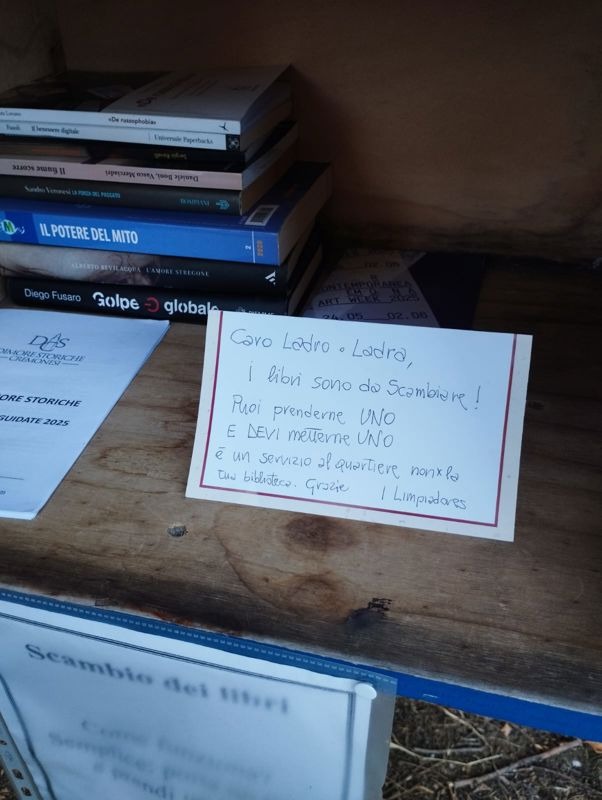 «De russophobia»
Il benessere digitale
Universale Paperbacks
Il fiume scorre
Daniele Boni, Vasco Merciadri
Sandro Veronesi LA FORZA DEL PASSATO
BOMPIANI
IL POTERE DEL MITO
2
ALBERTO BEVILACQUA L'AMORE STREGONE
Diego Fusaro Golpe globale
CONTEMPORANEA
ART WEEK 2025
24.05 02.06
DIMORE STORICHE
CREMONESI
MORE STORICHE
GUIDATE 2025
Caro Ladro o Ladra,
i libri sono da Scambiare!
Puoi prenderne UNO
E DEVI metterne UNO
è un servizio al quartiere non x la
tua biblioteca. Grazie I Limpiadores
Scambio dei libri
Come funziona?
Semplice:
e prendi